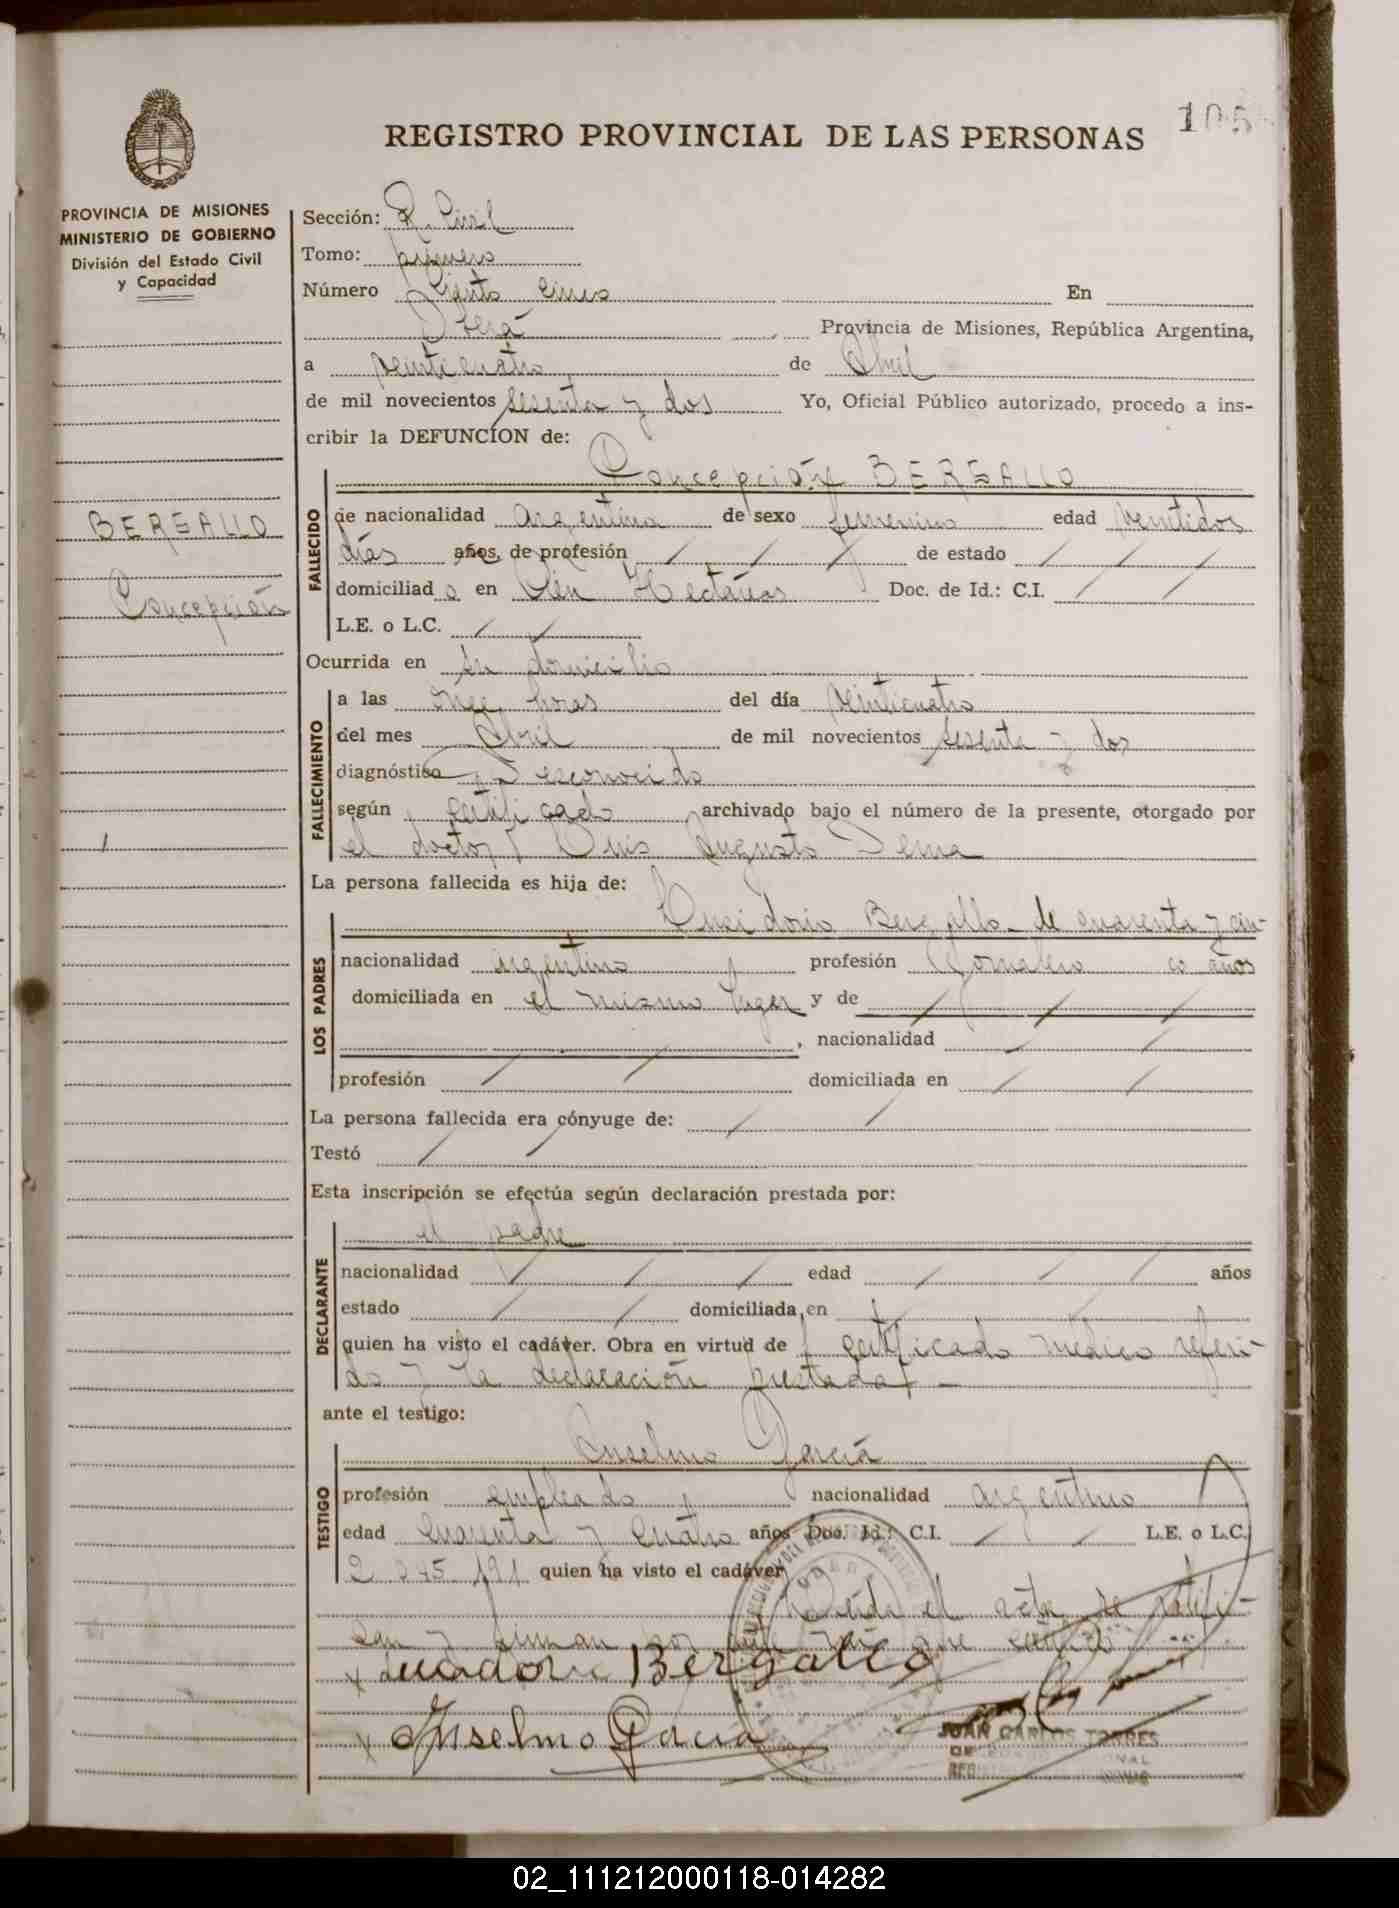 105
REGISTRO PROVINCIAL DE LAS PERSONAS
PROVINCIA DE MISIONES
MINISTERIO DE GOBIERNO
División del Estado Civil
y Capacidad
BERGALLO
Concepción
Sección: R. Civil
Tomo: primero
Número Ciento cinco En
Oberá Provincia de Misiones, República Argentina,
a veinticuatro de Abril
de mil novecientos sesenta y dos Yo, Oficial Público autorizado, procedo a ins-
cribir la DEFUNCION de:
Concepción BERGALLO
FALLECIDO
de nacionalidad argentina de sexo femenino edad veintidos
días años, de profesión / / / de estado / / /
domiciliad a en Cien Hectáreas Doc. de Id.: C.I. / /
L.E. o L.C. / /
Ocurrida en su domicilio
FALLECIMIENTO
a las once horas del día veinticuatro
del mes Abril de mil novecientos sesenta y dos
diagnóstico Desconocido
según certificado archivado bajo el número de la presente, otorgado por
el doctor Luis Augusto Dema
La persona fallecida es hija de:
LOS PADRES
Bergallo - de cuarenta y cin-
nacionalidad argentino profesión Jornalero co años
domiciliada en el mismo lugar y de / / /
, nacionalidad / /
profesión / / domiciliada en / /
La persona fallecida era cónyuge de: / /
Testó / /
Esta inscripción se efectúa según declaración prestada por:
DECLARANTE
el padre
nacionalidad / / / edad / / / años
estado / / domiciliada en
quien ha visto el cadáver. Obra en virtud de certificado médico referi-
do y la declaración prestada -
ante el testigo:
TESTIGO
Anselmo García
profesión empleado nacionalidad argentino
edad cuarenta y cuatro años Doc. Id.: C.I. / / L.E. o L.C.
quien ha visto el cadáver
Leída el acta la ratifi-
can y firman por ante mí que certifico
Bergallo
Anselmo Garcia
JUAN CARLOS TORRES
02_111212000118-014282